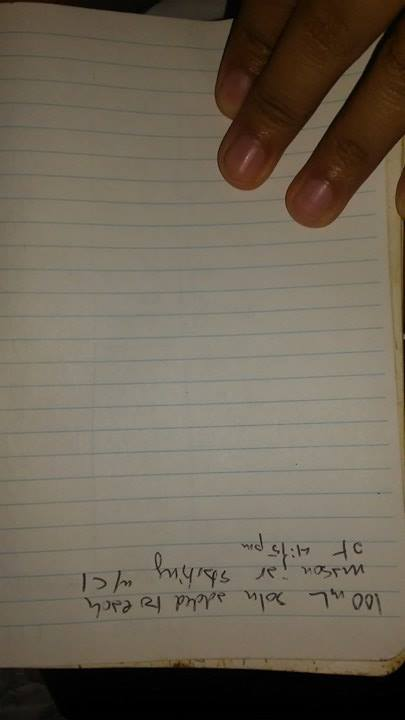 100 mL soln added to each
mason jar starting w/ C1
at 4:15 pm